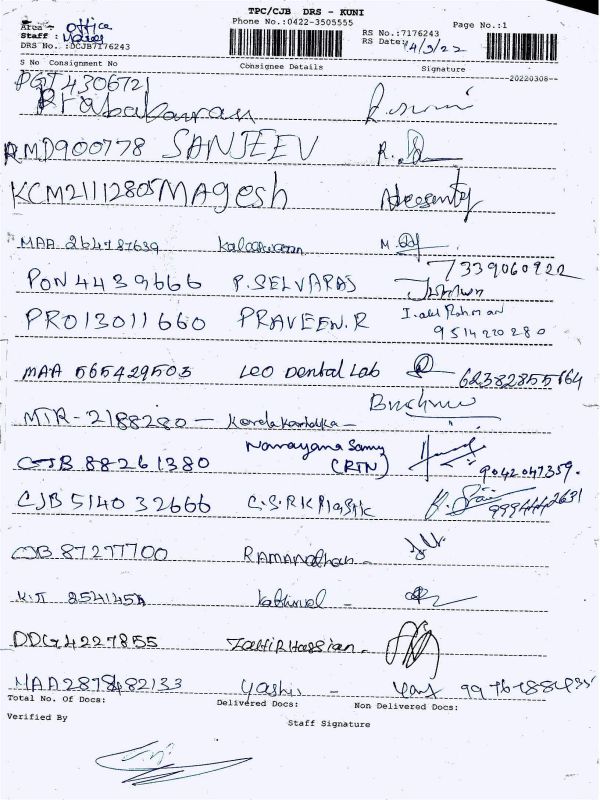 TPC/CJB DRS - KUNI
Phone No.:0422-3505555
Page No.:1
Area - office
Staff :
DRS No. :DCJB7176243
RS No.:7176243
RS Date: 14/3/22
S No Consignment No Consignee Details Signature
--20220308--
PGT430672
Prabakaran
RMD900778 SANJEEV
KCM21112805 Magesh
MAA 264787639
PON 4439666 P.SELVARAS 7339060922
PRO13011660 PRAVEEN.R I.abd Rahman
9514220280
MAA 565429503 LEO Dental Lab 62382855664
MTR-2188280 -
CJB 88261380 Narayana Samy
(RTN) 9042047359.
CJB 514032666 C.S.R.K Plastic 9994442631
CJB 87277700 RAMANathan -
854145
DDG4227855 ZAHIR Hassian.
MAA2878482133 Yashi -
Total No. Of Docs: Delivered Docs: Non Delivered Docs:
Verified By
Staff Signature